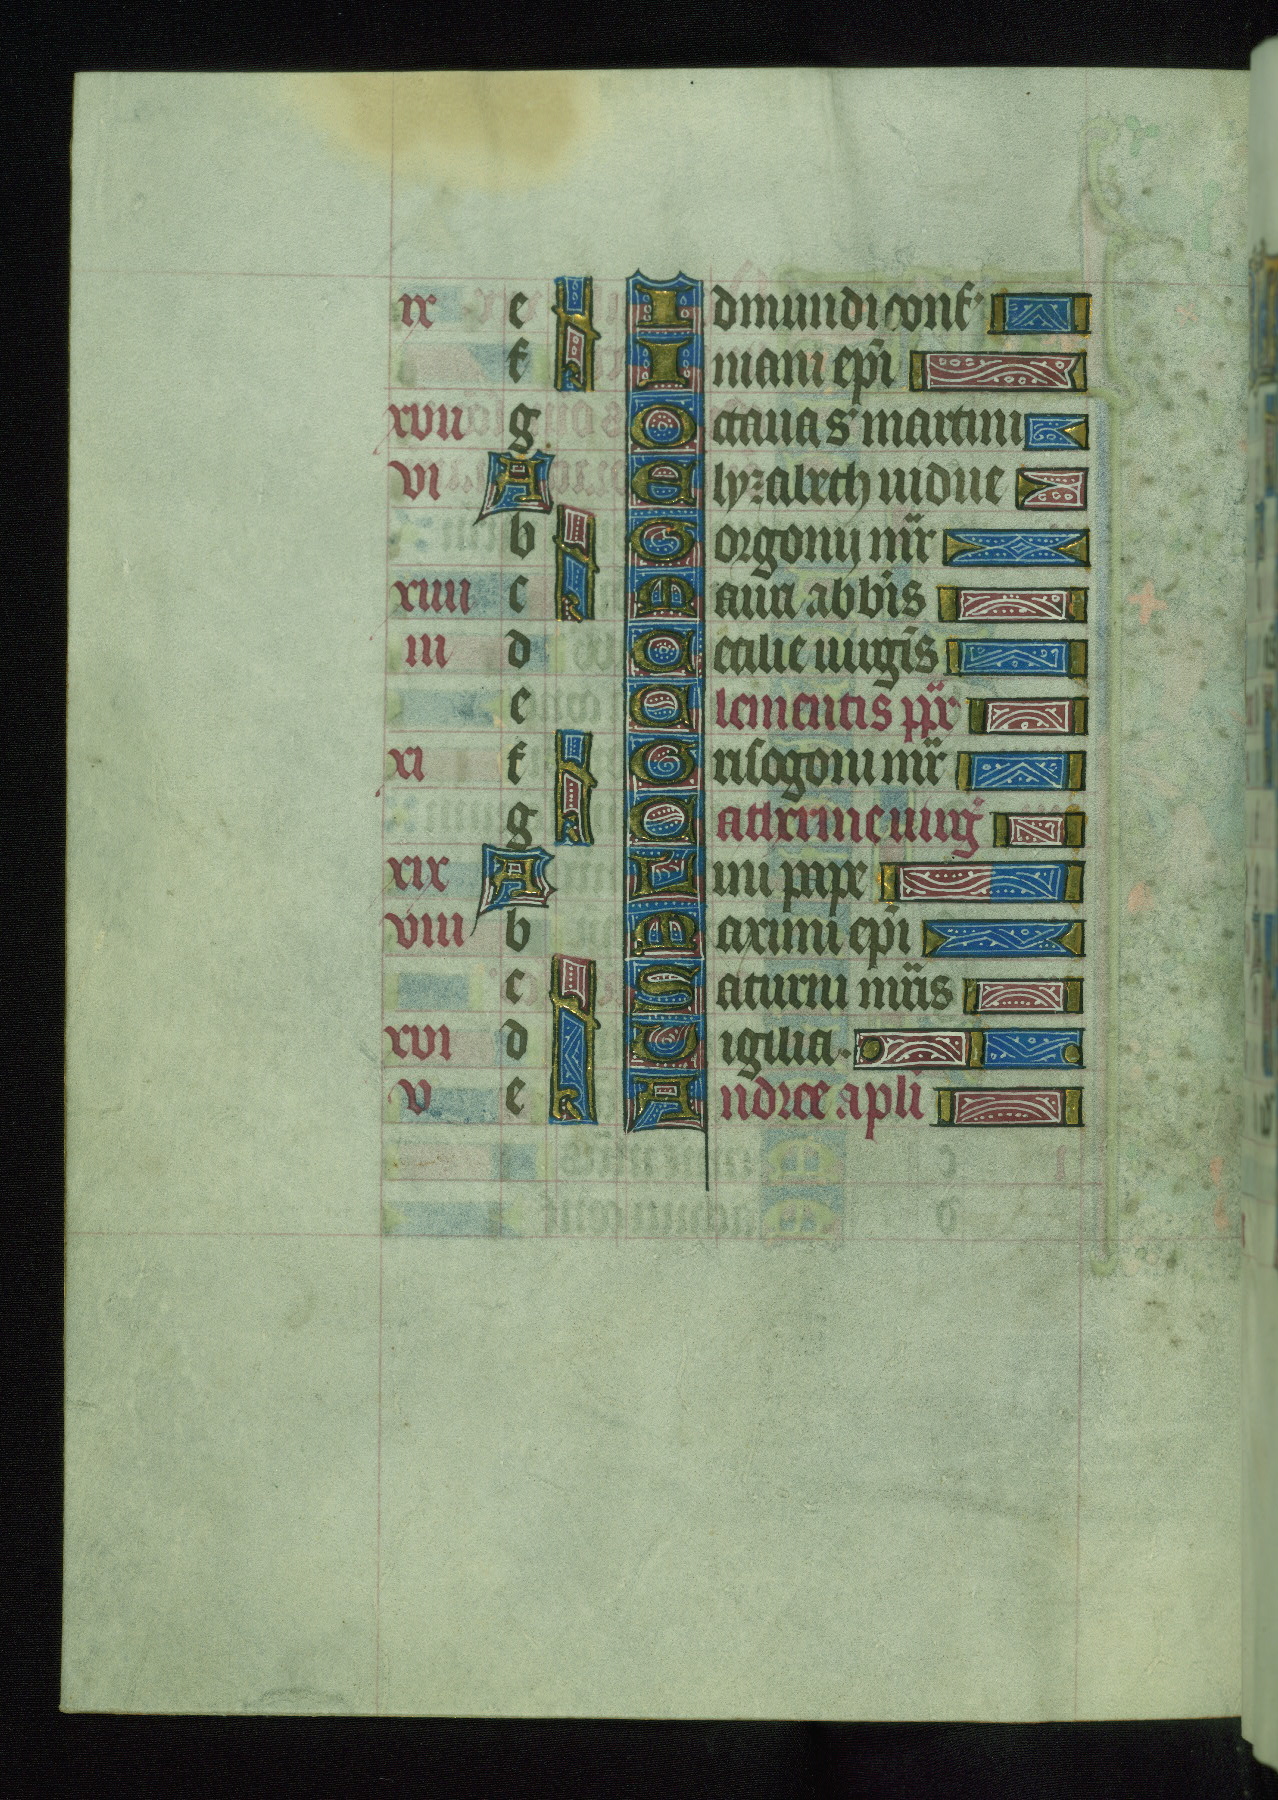 ix e Idmundi conf
f Iniani ep̄i
xvii g Octaua s martini
vi A Elyzabeth uidue
b Gorgonij mr̄
xiiii c Maua abb̄is
iii d Cecilie uirgīs
e Clementis pp̄r
xi f Grisogoni mr̄
g Catherine uirḡ
xix A Lini pape
viii b Maximi ep̄i
c Saturni mr̄is
xvi d Uigilia.
v e Andree apli